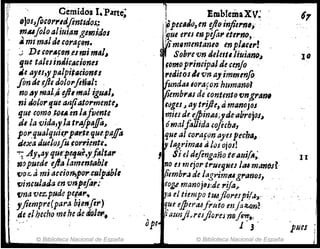 Gemidos I. Parte,
ojos, socorred sentidos;
ma, solo aliuian gemidos
à mi mal de coraçon.
De coraçon es mi mal,
que tales indicaciones
de ayes, y palpitaciones
son de este dolor señal:
no ay mal à este mal igual,
ni dolor que assi atormente,
que como toca en la fuente
de la vida, y la traspassa,
por qualquier parte que passa
dexa duelos su corriente.
Ay, ay que pequè, y faltar
no puede esta lamentable
voz à mi accion, por culpable
vinculada en vn pesar:
vna vez pude pecar,
y siempre (para bien ser)
de el hecho me he de doler,
ò pe-
Emblema XV.
67
ò pecado, en esto infierno,
que eres en pesar eterno,
si momentaneo en placer!
Sobre vn deleite liuiano,
10
como principal de censo
reditos de vn ay immenso
fundas coraçon humano!
siembras de contento vn grano
coges, ay triste, à manojos
mies de espinas, y de abrojos,
ò mal fallida cosecha,
que al coraçon ayes pecha,
y lagrimas à los ojos!
Si el desengaño te auisa,
11
no es mejor trueques las manos?
siembra de lagrimas granos,
coge manojos de risa,
ya el tiempo tus flores pisa,
que esperas fruto en sazon?
si aun si, res flores no son,
1 3
pues
© Biblioteca Nacional de España
© Biblioteca Nacional de España